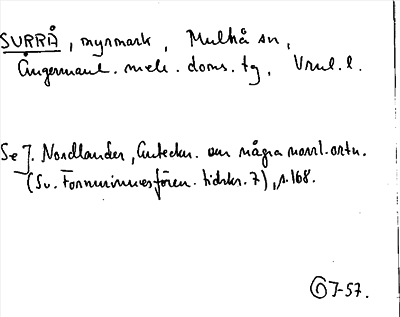 SURRÅ, myrmark, Multrå sn,
Ångermanl. mell. doms. tg, Vnrl. l.
Se J. Nordlander, Anteckn. om några norrl. ortn.
(Sv. Fornminnesfören. tidskr. 7), s. 168.
J-57.